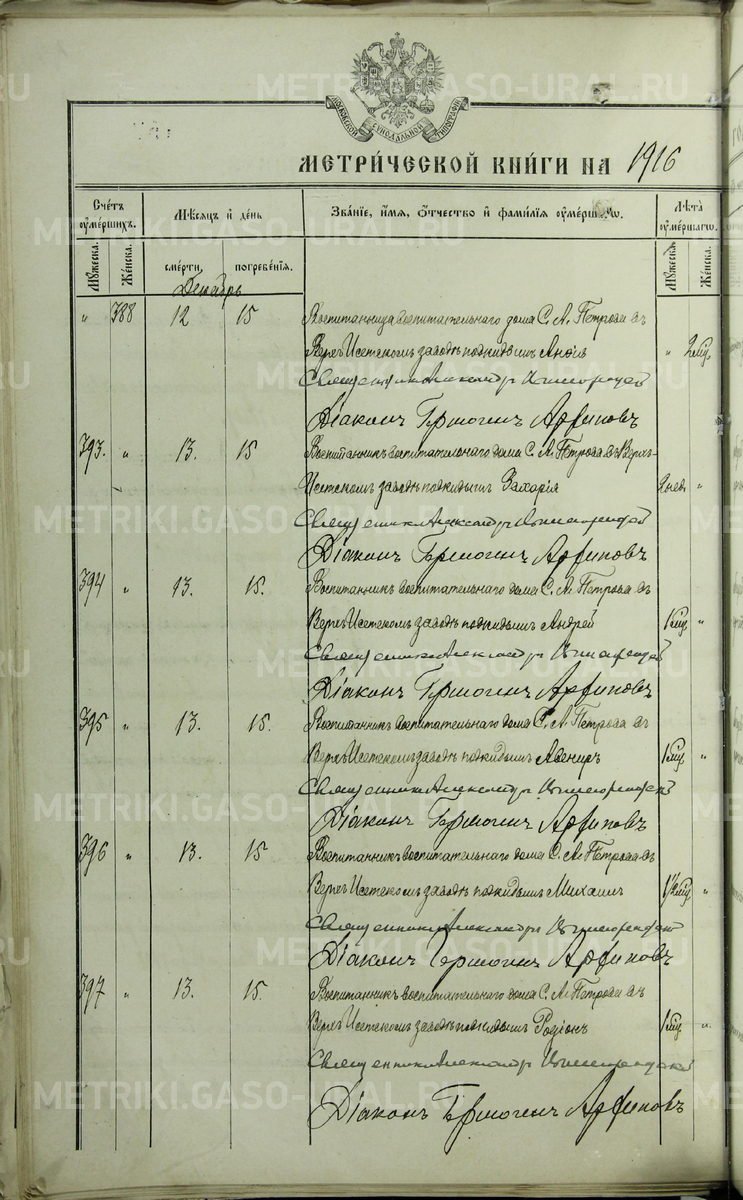 МОСКОВСКОЙ СѴНОДАЛЬНОЙ ТИПОГРАФІИ
МЕТРИ́ЧЕСКОЙ КНИ́ГИ НА 1916
Сче́тъ оу҆ме́ршихъ.
Мѣ́сяцъ и҆ де́нь
Зва́нїе, и҆́мя, ѻ҆́тчество и҆ фами́лїя оу҆ме́ршагѡ.
Лѣ́та оу҆ме́ршагѡ.
Му́жеска. Же́нска. сме́рти, погребе́нїя. Му́жеска. Же́нска.
Декабрь
" 388 12 15 Воспитанница воспитательнаго дома С. А. Петрова въ
Верхъ Исетскомъ заводѣ подкидышъ " 2 мѣс.
Священникъ Александръ
Діаконъ Гермогенъ Арфиповъ
393. " 13. 15 Воспитанникъ воспитательнаго дома С. А. Петрова въ Верхъ-
Исетскомъ заводѣ подкидышъ Захарія "
Священникъ Александръ
Діаконъ Гермогенъ Арфиповъ
394 " 13. 15. Воспитанникъ воспитательнаго дома С. А. Петрова въ
Верхъ Исетскомъ заводѣ подкидышъ Андрей 1 мѣс. "
Священникъ Александръ
Діаконъ Гермогенъ Арфиповъ
395 " 13. 15. Воспитанникъ воспитательнаго дома С. А. Петрова въ
Верхъ Исетскомъ заводѣ подкидышъ Авениръ 1 мѣс. "
Священникъ Александръ
Діаконъ Гермогенъ Арфиповъ
396 " 13. 15 Воспитанникъ воспитательнаго дома С. А. Петрова въ
Верхъ Исетскомъ заводѣ подкидышъ Михаилъ 1½ мѣс. "
Священникъ Александръ
Діаконъ Гермогенъ Арфиповъ
397 " 13. 15. Воспитанникъ воспитательнаго дома С. А. Петрова въ
Верхъ Исетскомъ заводѣ подкидышъ Родіонъ 1 мѣс. "
Священникъ Александръ
Діаконъ Гермогенъ Арфиповъ
METRIKI.GASO-URAL.RU